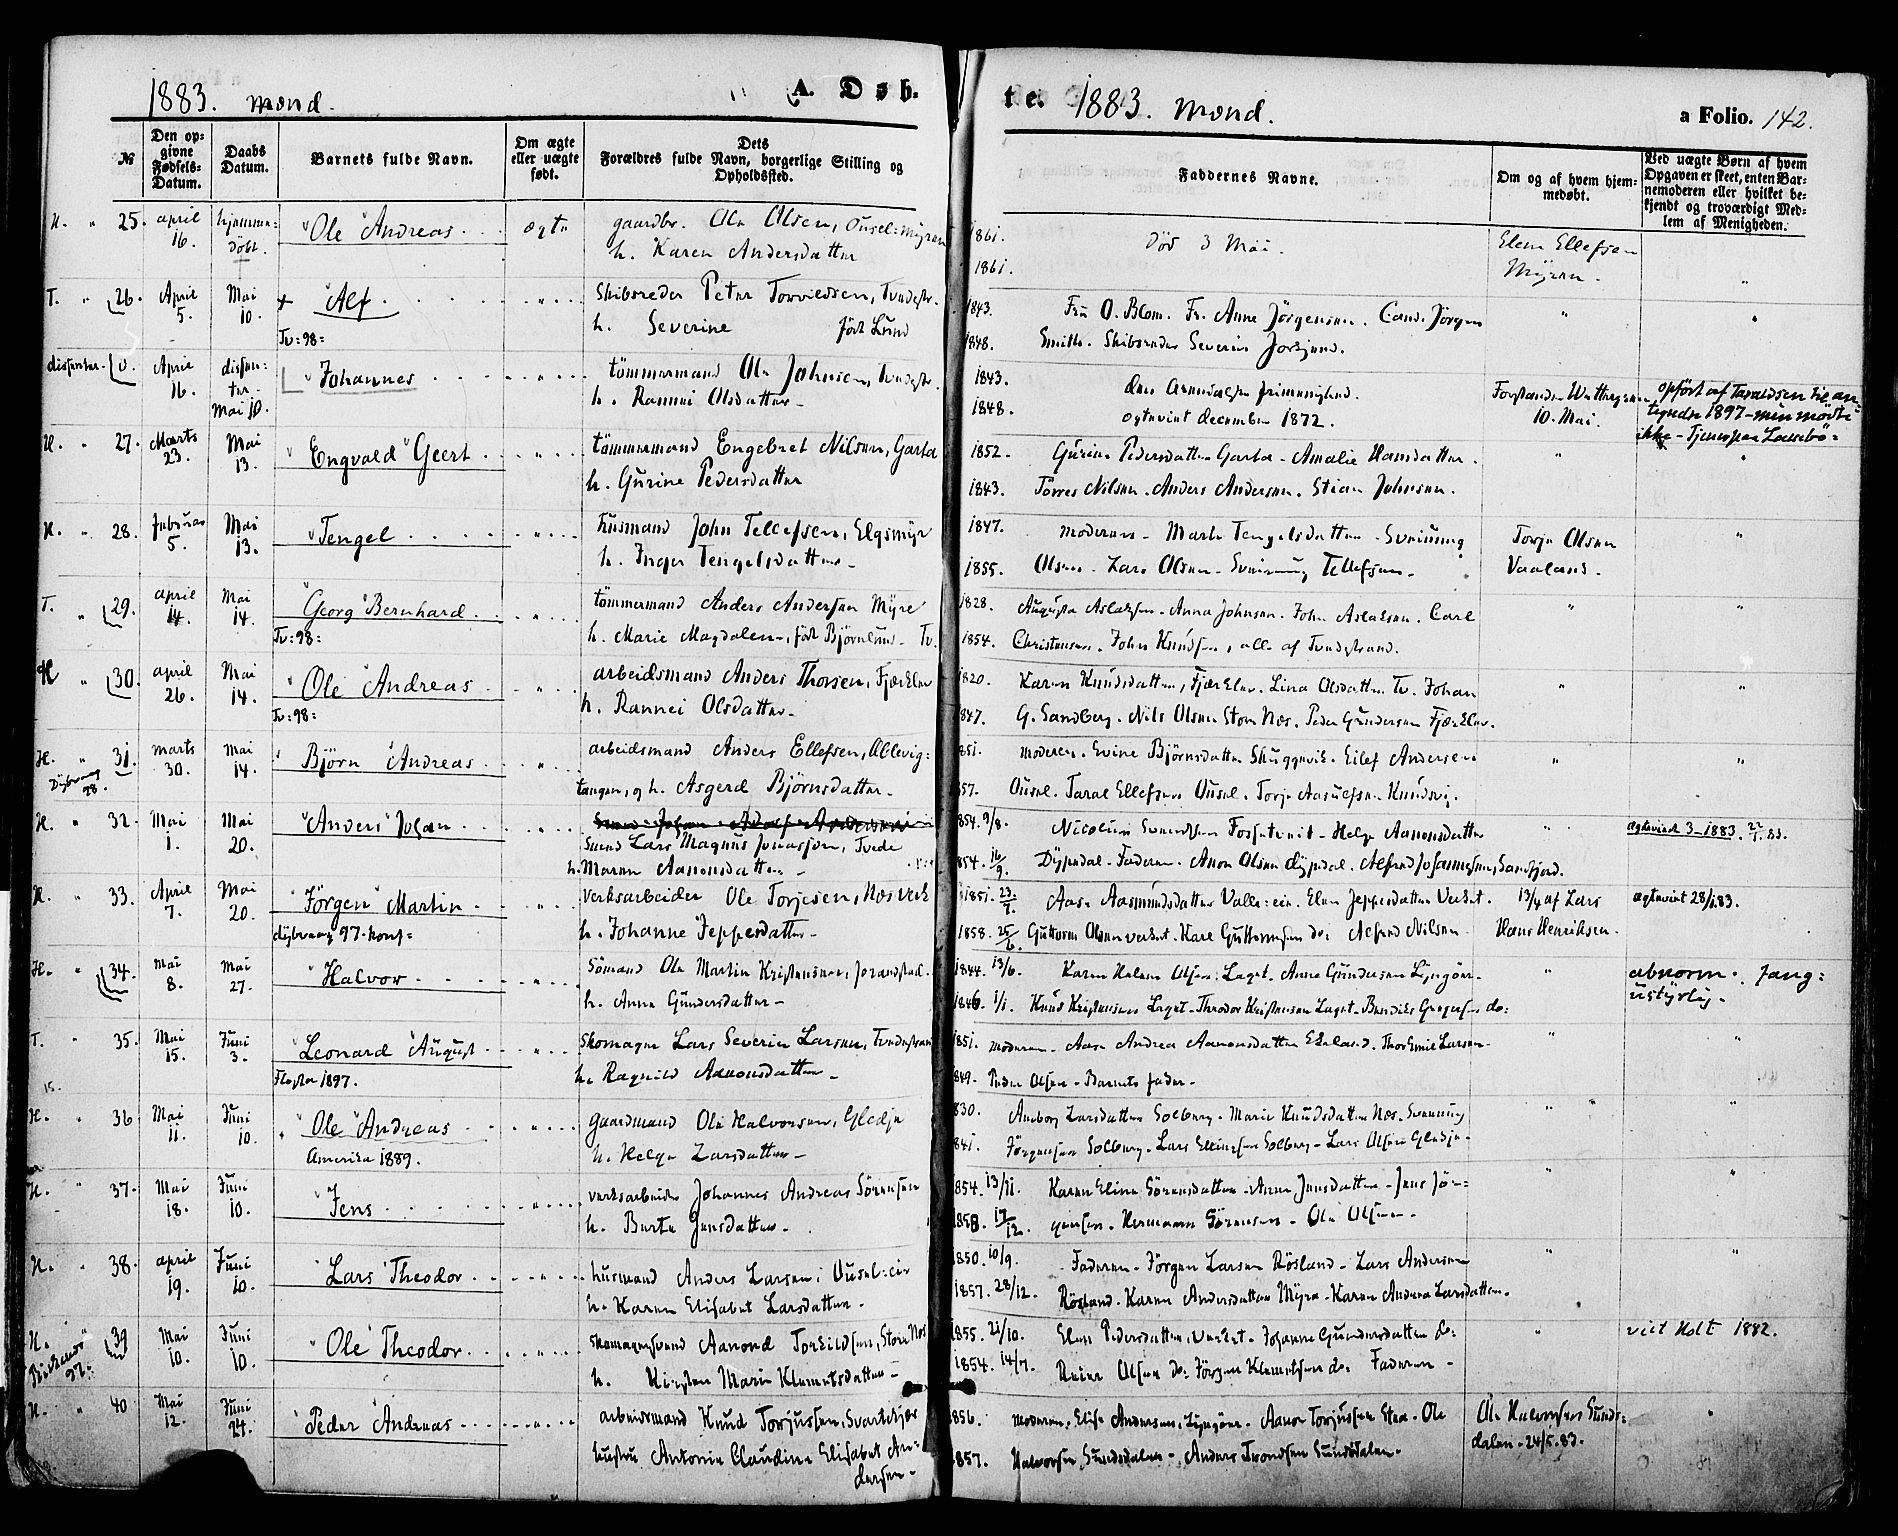 1883. Mænd. A. Døb-
te. 1883. Mænd. a Folio. 142.
№ Den op-givne Fødsels-Datum. Daabs Datum. Barnets fulde Navn. Om ægte eller uægte født. Dets Forældres fulde Navn, borgerlige Stilling og Opholdssted.
Faddernes Navne. Om og af hvem hjem-medøbt. Ved uægte Børn af hvem Opgaven er skeet, enten Bar-nemoderen eller hvilket be-kjendt og troværdigt Med-lem af Menigheden.
H. " 25. april 16. hjemme-døbt. Ole Andreas ægte gaardbr. Ole Olsen, Ousel-Myren
h. Karen Andersdatter
1861. Død 3 Mai. Elen Ellefsen
1861. Myren.
T. " 26. April 5. Mai 10. + Alf. Skibsreder Peter Torvildsen, Tvedestr.
Tv: 98: h. Severine født Lund
1843. Frü O. Blom. Fr. Anne Jörgensen. Cand. Jörgen
1848. Smith. Skibsreder Severin
dissenter. 0. April 16. dissen-ter. Mai 10. Johannes tömmermand Ole Johnsen, Tvedestr.
h. Rannei Olsdatter
1843. den Arendalske frimenighed. Forstander 10. Mai. opfört af Taraldsen til
1848. ægteviet december 1872. 1897 - men mödte ikke -
H. " 27. Marts 23. Mai 13. Engvald Geert tömmermand Engebret Nilsen, Garta
h. Gurine Pedersdatter
1852. Gurine Pedersdatter Garta - Amalie Hansdatter.
1843. Torres Nilsen. Anders Andersen. Stian Johnsen.
H. " 28. Februar 5. Mai 13. Tengel husmand John Tellefsen, Elgsmyr
h. Inger Tengelsdatter
1847. moderen - Marte Tengelsdatter - Svenning Torje Olsen
1855. Olsen - Lars Olsen - Svenning Tellefsen - Vaaland.
T. " 29. april 14. Mai 14. Georg Bernhard tömmermand Anders Andersen Myre
Tv: 98: h. Marie Magdalene, født Björnlund - Tv.
1828. Augusta Aslaksen - Anna Johnsen. John Aslaksen. Carl
1854. Christensen. John Knudsen, alle af Tvedestrand.
H " 30. april 26. Mai 14. Ole Andreas arbeidsmand Anders Thorsen, Fjærkler
Tv: 98: h. Rannei Olsdatter
1820. Karen Knudsdatter, Fjærkler. Lina Olsdatter Tv. Johan
1847. G. Sandberg. Nils Olsen Store Næs. Peder Gundersen Fjærkler.
H. " 31. marts 30. Mai 14. Björn Andreas arbeidsmand Anders Ellefsen, Allevig-
Dybvaag 98. tangen, og h. Asgerd Björnsdatter
1851. moderen. Evine Björnsdatter Skuggevik. Eilef Andersen
1857. Ousel. Taral Ellefsen Ousel. Torje Aasulfsen
H. " 32. Mai 1. Mai 20. Anders Johan
Svend Lars Magnus Jonassen, Tvede
h. Maren Aanonsdatter
1854. 9/8. Nicoline Svendsen - Helge Aanonsdatter ægteviet 3-1883.
1854. 16/9. Dypedal - Faderen. Anon Olsen Dypedal. Alfred Johannessen, Sandfjord.
H. " 33. April 7. Mai 20. Jörgen Martin verksarbeider Ole Torjesen, Næs Verk
dybvaag 97. konf: h. Johanne Jeppesdatter
1851. Aase Aasmundsdatter - Elen Jeppesdatter Verket. 13/4 af Lars ægteviet 28/1 83.
1858. 25/6. Guttorm Olsen verket. Kare Guttormsen do: Alfred Nilsen. Hans Henriksen.
H. " 34. Mai 8. Mai 27. Halvor Sömand Ole Martin Kristensen, Jorandstad.
h. Anne Gundersdatter
1844. 13/6. Karen Helene Olsen Laget. Anne Gundersen Lyngör abnorm.
1846. 1/1. Knud Kristensen Laget - Theodor Kristensen Laget - do:
T. " 35. Mai 15. Juni 3. Leonard August Skomager Lars Severin Larsen, Tvedestrand
15. Flosta 1897. h. Ragnild Aanonsdatter
1851. moderen - Aase Andrea Aanonsdatter Ekeland. Thor Emil Larsen
1849. Peder Olsen - Barnets fader -
H. " 36 Mai 11. Juni 10. Ole Andreas Gaardmand Ole Halvorsen, Gledje
Amerika 1889. h. Helge Larsdatter
1830. Anborg Larsdatter Solberg. Marie Knudsdatter Næs. Svenning
1841. Jörgensen Solberg. Lars Ellingsen Solberg. Lars Olsen Gledje
H. " 37. Mai 18. Juni 10. Jens verksarbeider Johannes Andreas Sörensen
h. Berte Jensdatter
1854. 13/11. Karen Eline Sörensdatter - Anne Jensdatter - Jens Jör-
1858. 17/12. gensen - Hermann Sörensen - Ole Olsen -
H. " 38. april 19. Juni 10. Lars Theodor husmand Anders Larsen, Ousel-eie
h. Karen Elisabet Larsdatter
1850. 10/9. Faderen - Jörgen Larsen Rösland - Lars Andersen
1857. 28/12. Rösland. Karen Andersdatter Myra - Karen Andrea Larsdatter.
H. " 39 Mai 10. Juni 10. Ole Theodor Skomagersvend Aanond Torkildsen, Store Næs
97. h. Kirsten Marie Klemetsdatter
1855. 21/10. Elen Pedersdatter, Verket. Johanne Gundersdatter do: viet Holt 1882.
1854. 14/7. Reier Olsen do: Jörgen Klemetsen do: Faderen -
H. " 40 Mai 12. Juni 24. Peder Andreas arbeidsmand Knud Torjussen, Svartekjær
hustru Antonie Claudine Elisabet An-
dersen -
1856. moderen, Elise Andersen, Lyngör. Aanon Torjussen - Ole Ole Halvorsen Sunds-
1857. Halvorsen Sundsdalen - Anders Trondsen Sundsdalen. dalen - 24/5. 83.